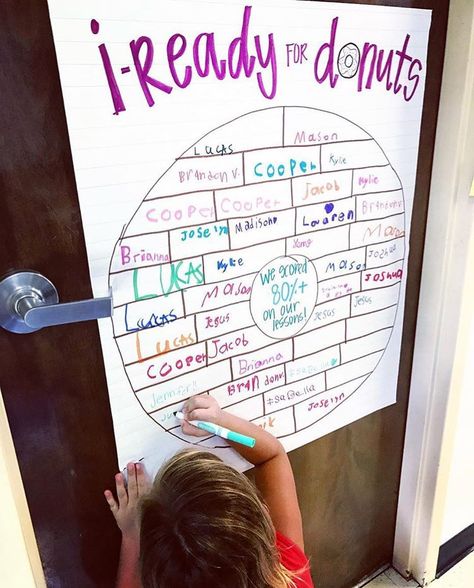 i-Ready FOR donuts
LUCAS Mason
Brandon V. COOPER Kylie
COOPER COOPER Jacob Kylie
Brianna Joselyn Madison Lauren Brandon V.
LUCAS Kylie Mason Joshua
We scored
80%+
on our
lessons!
LUCAS Mason Joshua
LUCAS Jesus Jesus Jesus
COOPER Jacob
Brianna
Jennifer Brandon V. Isabella
Isabella Joselyn